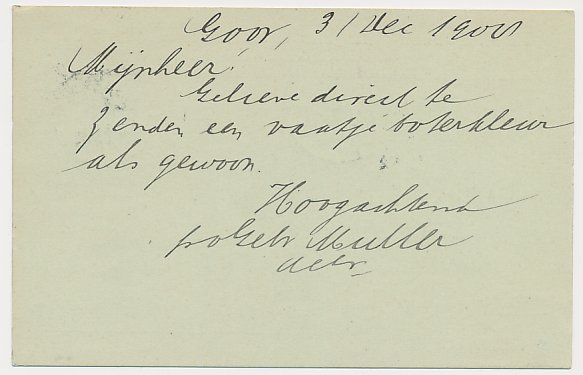 Goor, 31 Dec 1900
Mijnheer!
Gelieve direct te
zenden een vaatje boterkleur
als gewoon.
Hoogachtend
pro Gebr Muller